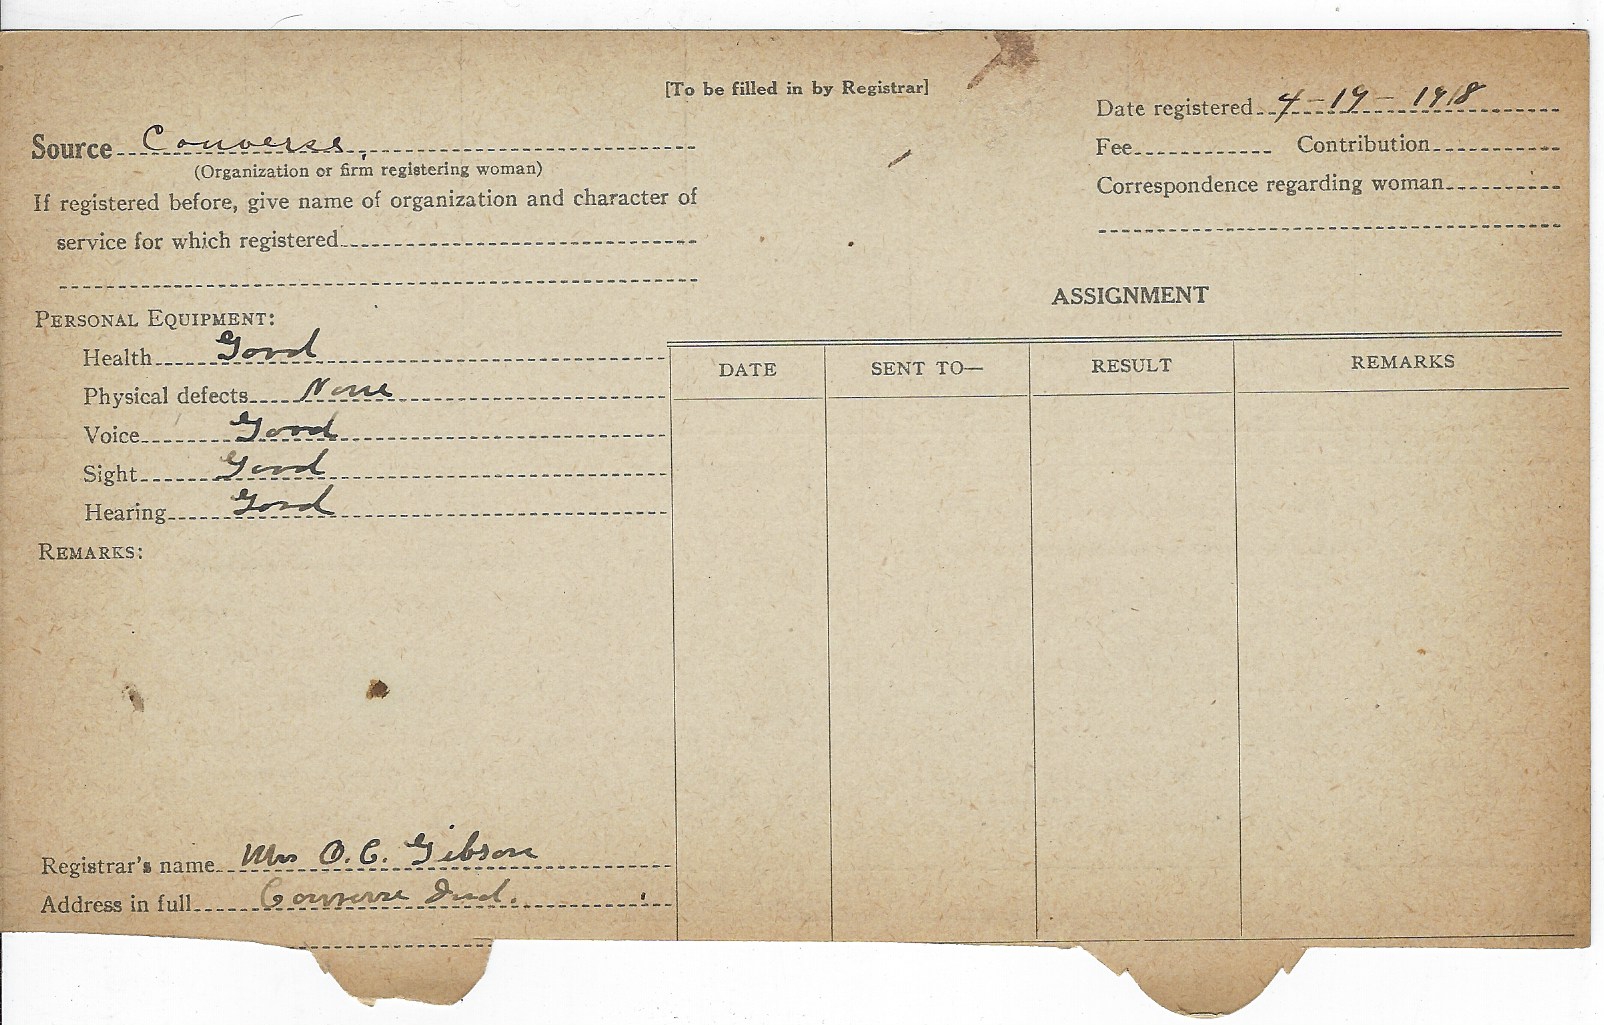 [To be filled in by Registrar]
Source Converse,
(Organization or firm registering woman)
If registered before, give name of organization and character of
service for which registered
Date registered 4-19-1918
Fee Contribution
Correspondence regarding woman
PERSONAL EQUIPMENT:
Health Good
Physical defects None
Voice Good
Sight Good
Hearing Good
REMARKS:
Registrar's name Mrs O. C. Gibson
Address in full Converse Ind.
ASSIGNMENT
DATE SENT TO— RESULT REMARKS